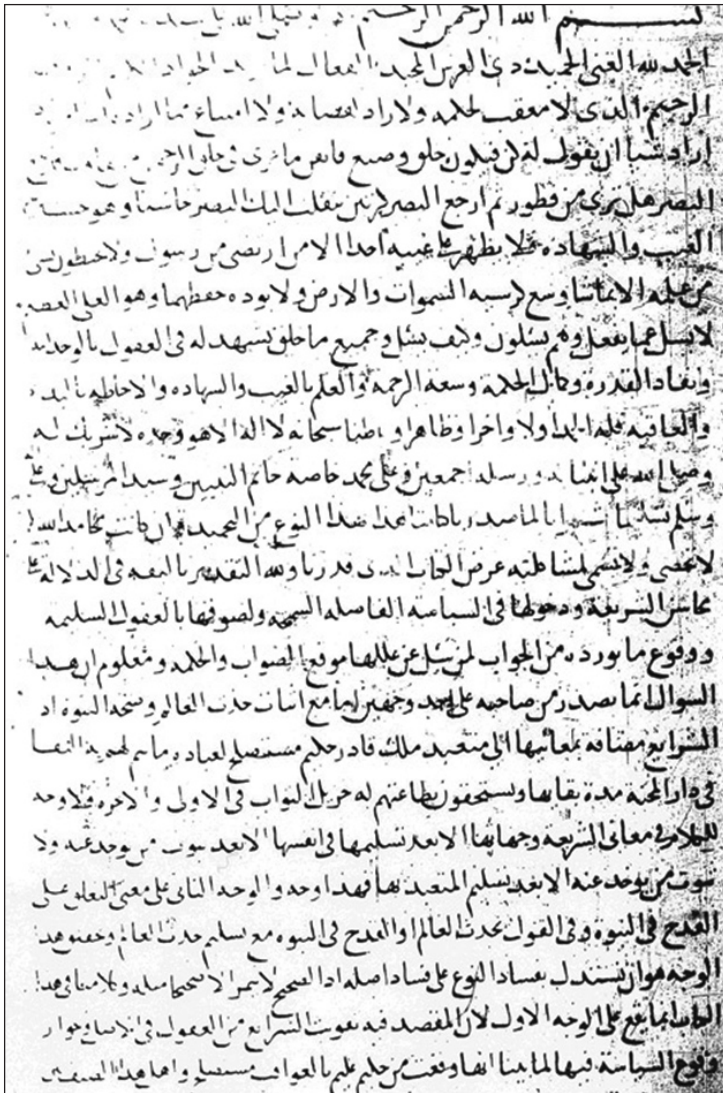 بسم الله الرحمن الرحيم
الحمد لله الغني الحميد ذي العرش المجيد الفعال لما يريد الجواد
الرحيم الذي لا معقب لحكمه ولا راد لقضائه ولا امتناع مما اراد
اراد شيا ان يقول له كن فيكون خلق وصنع فاتقن ما ترى في خلق الرحمن من تفاوت فارجع
البصر هل ترى من فطور ثم ارجع البصر كرتين ينقلب اليك البصر خاسئا وهو حسير
الغيب والشهاده فلا يظهر على غيبه احدا الا من ارتضى من رسول ولا يحيطون بشي
من علمه الا بما شا وسع كرسيه السموات والارض ولا يوده حفظهما وهو العلي العظيم
لا يسل عما يفعل وهم يسلون وكيف يسل وجميع ما خلق تشهد له في العقول بالوحدانيه
ونفاذ القدره وكمال الحكمه وسعه الرحمه والعلم بالغيب والشهاده والاحاطه
والعاقبه فله الحمد اولا واخرا وظاهرا وباطنا سبحانه لا اله الا هو وحده لا شريك له
وصلى الله على انبيائه ورسله اجمعين وعلى محمد خاصه خاتم النبيين وسيد المرسلين وعلى
وسلم تسليما انما صدرنا كتابنا هذا بهذا النوع من التحميد وان كانت محامد الله
لا تحصى ولا تنتهي لمشاكلته غرض الكتاب الذي قدرنا ولله التقدير تاليفه في الدلاله على
محاسن الشريعة ودخولها في السياسه الفاضله السمحه ولصوقها بالعقول السليمه
ووقوع ما نورده من الجواب لمن يسل عن عللها موقع الصواب والحكمه ومعلوم ان هذا
السوال انما يصدر من صاحبه على احد وجهين اما مع اثبات حدث العالم وصحه النبوه اذ
الشرايع مضافه بمعانيها الى متعبد ملك قادر حكيم مستصلح لعباده بها ثم لهم فيه البقا
في دار المحنه مدة بقائها ويستحقون بطاعتهم له جزيل الثواب في الاولى والاخره فلا وجه
للكلام في معاني الشريعه وجهاتها الا بعد تسليمها في انفسها الا بعد ثبوت من توجد عنه ولا
ثبوت من يوجد عنه الا بعد تسليم المتعبد بها فهذا وجه والوجه الثاني على معنى التعلق على
القدح في النبوه وفي القول بحدث العالم او القدح في النبوه مع تسليم حدث العالم وحقيقه هذا
الوجه هو ان يستدل بفساد الفرع على فساد اصله اذ الصحيح لا يثمر الا صحيحا مثله وكلامنا في هذا
الكتاب انما يقع على الوجه الاول لان المقصد فيه تقريب الشرايع من العقول في جواز
وقوع السياسة فيها لما بينا انها وقعت من حكيم عليم بالعواقب مستصلح واما هذا الصنف